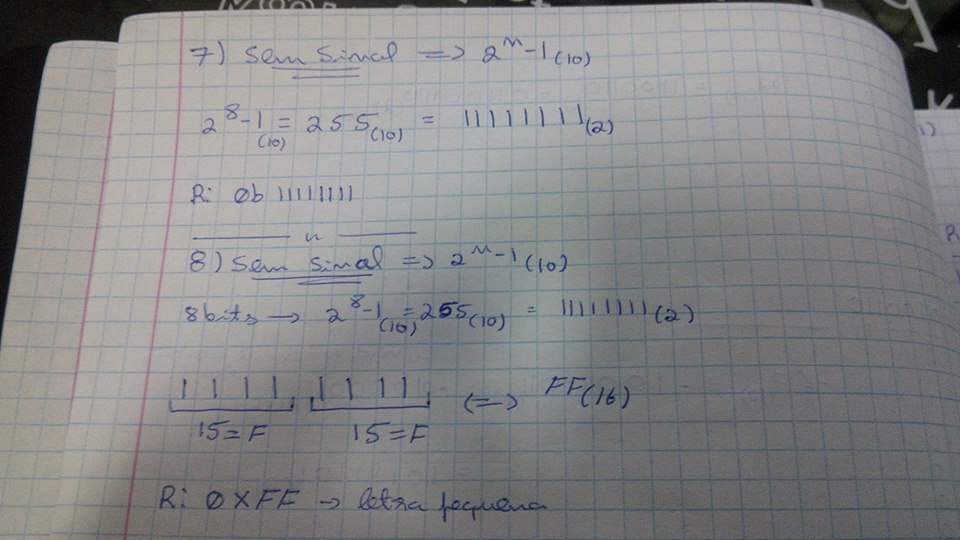 7) Sem Sinal => 2^n-1(10)
2^8-1(10) = 255(10) = 11111111(2)
R: 0b 11111111
8) Sem Sinal => 2^n-1(10)
8bits → 2^8-1(10) = 255(10) = 11111111(2)
1 1 1 1 1 1 1 1 <=> FF(16)
15=F 15=F
R: 0XFF → letra pequena